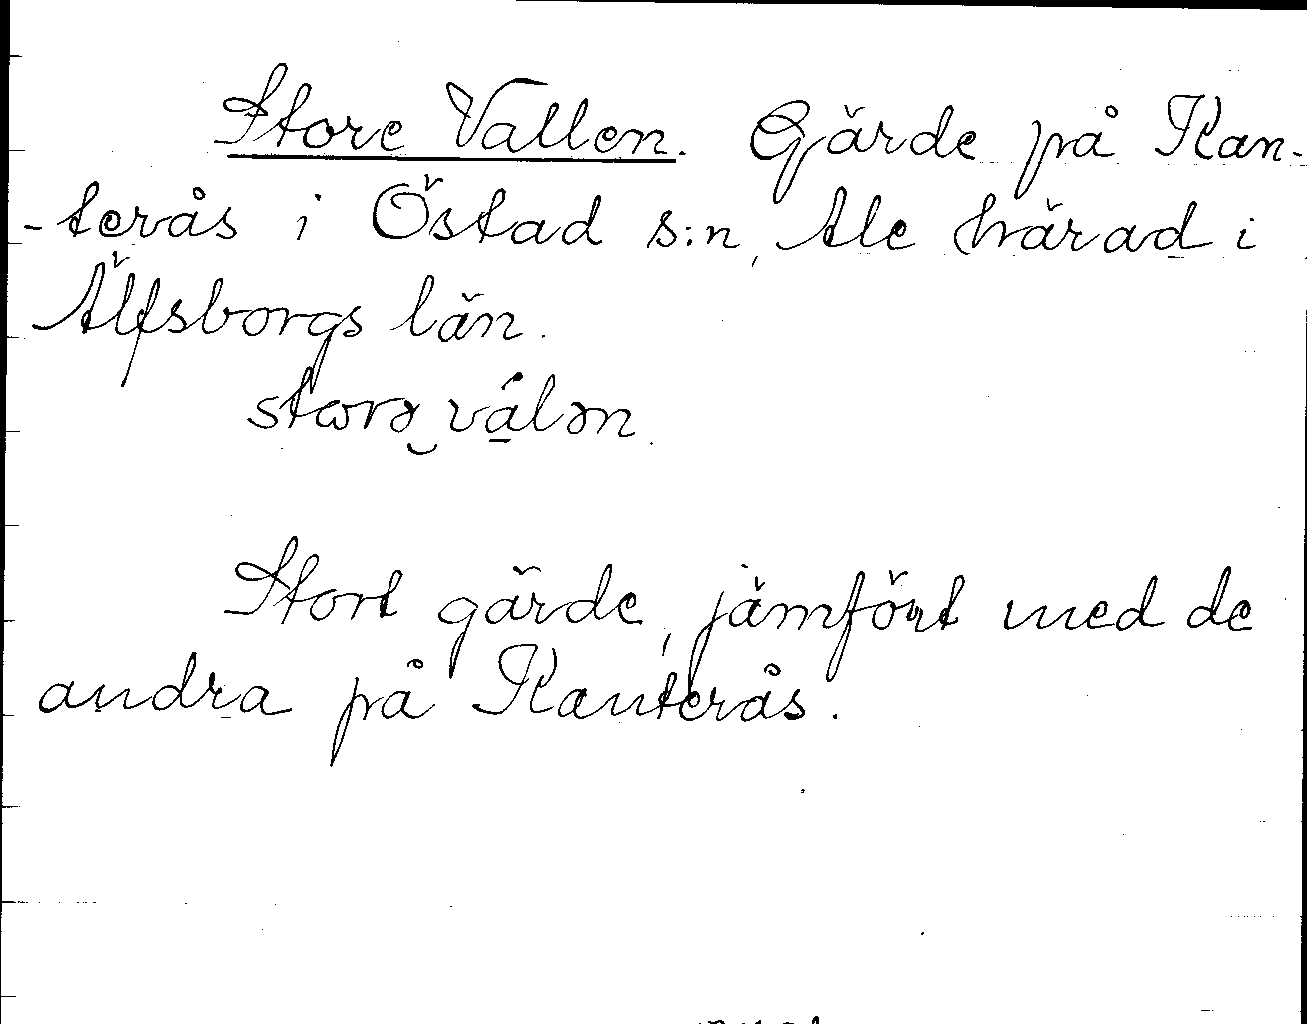 Store Vallen. Gärde på Kan-
-terås i Östad s:n, Ale härad i
Älfsborgs län.
storə‿válən.
Stort gärde, jämfört med de
andra på Kanterås.